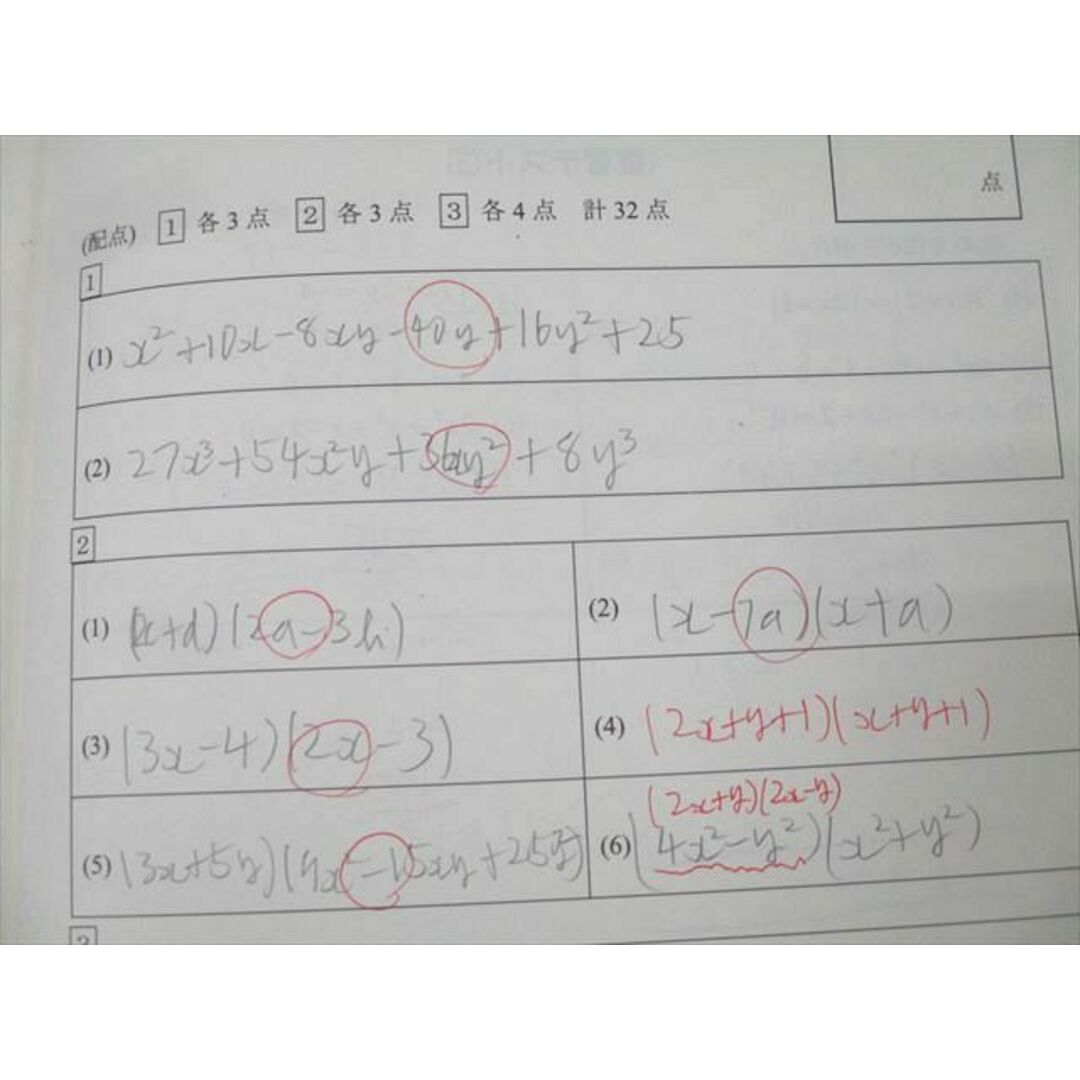 点
(配点) 1 各3点 2 各3点 3 各4点 計32点
1
(1) x²+10x-8xy-40y+16y²+25
(2) 27x³+54x²y+36xy²+8y³
2
(1) (c+d)(2a-3b)
(2) (x-7a)(x+a)
(3) (3x-4)(2x-3)
(4) (2x+y+1)(x+y+1)
(2x+y)(2x-y)
(5) (3x+5y)(9x²-15xy+25y²)
(6) (4x²-y²)(x²+y²)